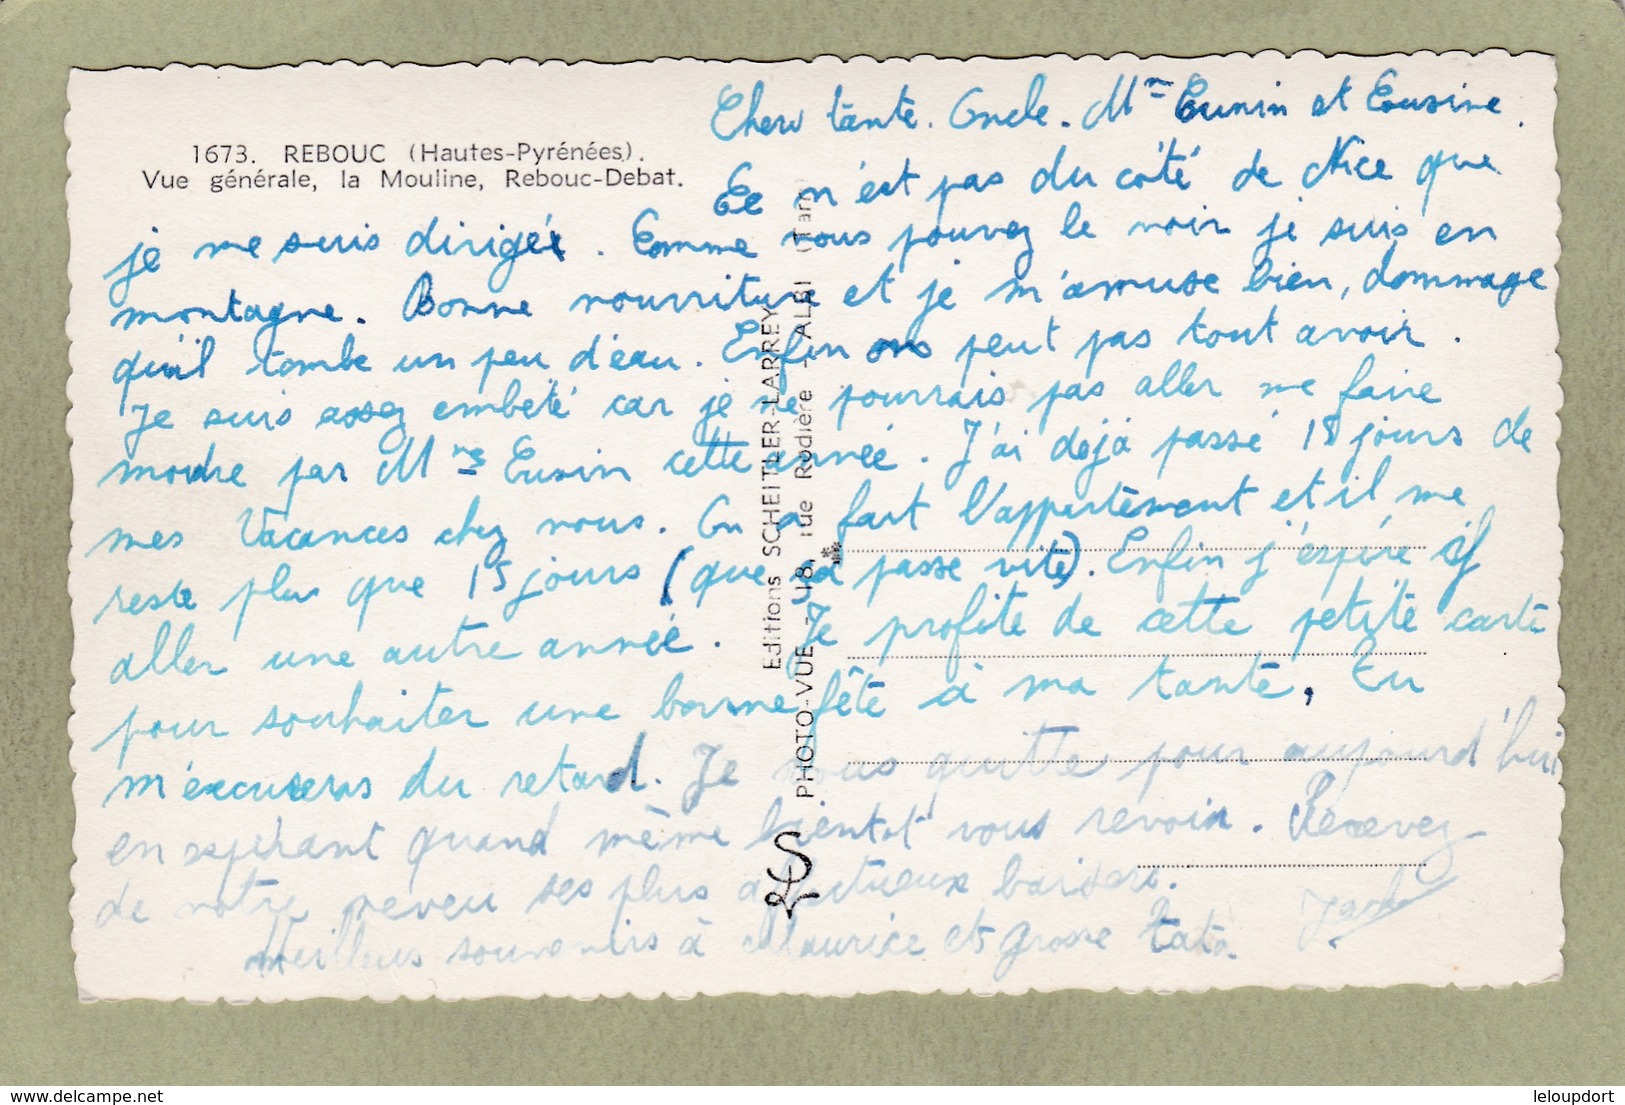 1673. REBOUC (Hautes-Pyrénées).
Vue générale, la Mouline, Rebouc-Debat.
Cher tante. Oncle. Mme Cunin et Cousine.
Ce n'est pas du côté de Nice que
je me suis dirigé. Comme vous pouvez le voir je suis en
montagne. Bonne nourriture et je m'amuse bien, dommage
qu'il tombe un peu d'eau. Enfin on peut pas tout avoir.
Je suis assez embeté car je ne pourrais pas aller me faire
modre par Mme Cunin cette année. J'ai dejà passé 18 jours de
mes Vacances chez nous. On a fait l'appartement et il me
reste plus que 15 jours (que ça passe vite). Enfin j'espére y
aller une autre année. Je profite de cette petite carte
pour souhaiter une bonne fête à ma tante. Tu
m'excuseras du retard. Je vous quitte pour aujourd'hui
en espérant quand même bientot vous revoir. Recevez
de votre neveu ses plus affectueux baisers.
Meilleurs souvenirs à Maurice et grosse tata.
Editions SCHEITLER-LARREY
PHOTO-VUE - 18, rue Rodière - ALBI (Tarn)